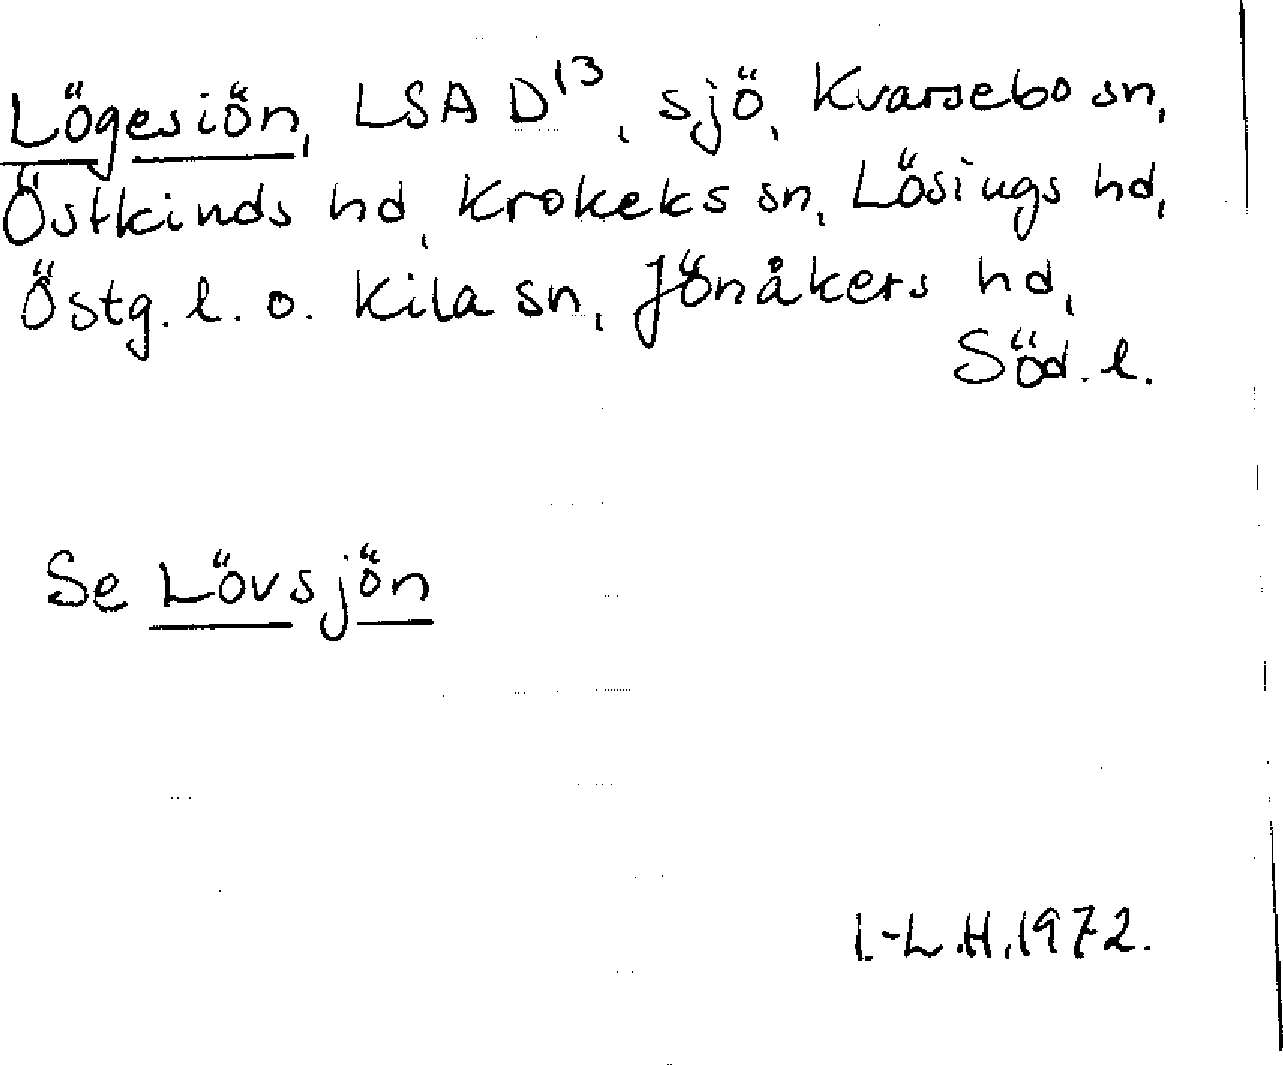 Lögesiön, LSA D¹³, sjö, Kvarsebo sn,
Östkinds hd, Krokeks sn, Lösings hd,
Östg. l. o. Kila sn, Jönåkers hd,
Söd. l.
Se Lövsjön
I.-L.H.1972.